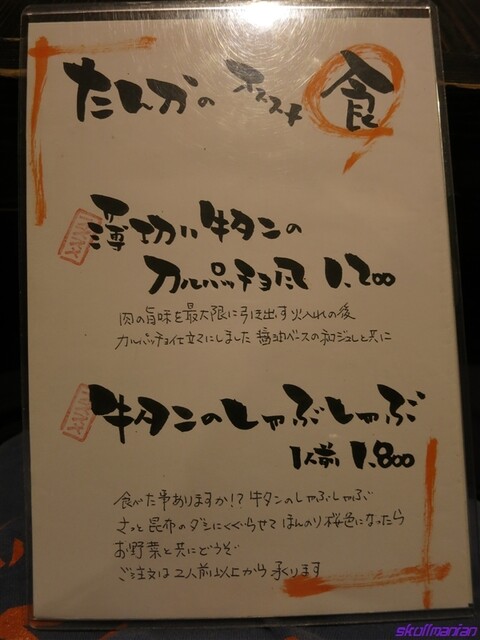 たんかの オススメ 食
薄切り牛タンの
カルパッチョ風 1,200
肉の旨味を最大限に引き出す火入れの後
カルパッチョ仕立てにしました 醤油ベースの和ジュレと共に
牛タンのしゃぶしゃぶ
1人前 1,800
食べた事ありますか!? 牛タンのしゃぶしゃぶ
さっと昆布のダシにくぐらせて ほんのり桜色になったら
お野菜と共にどうぞ
ご注文は2人前以上から承ります
skullmanian